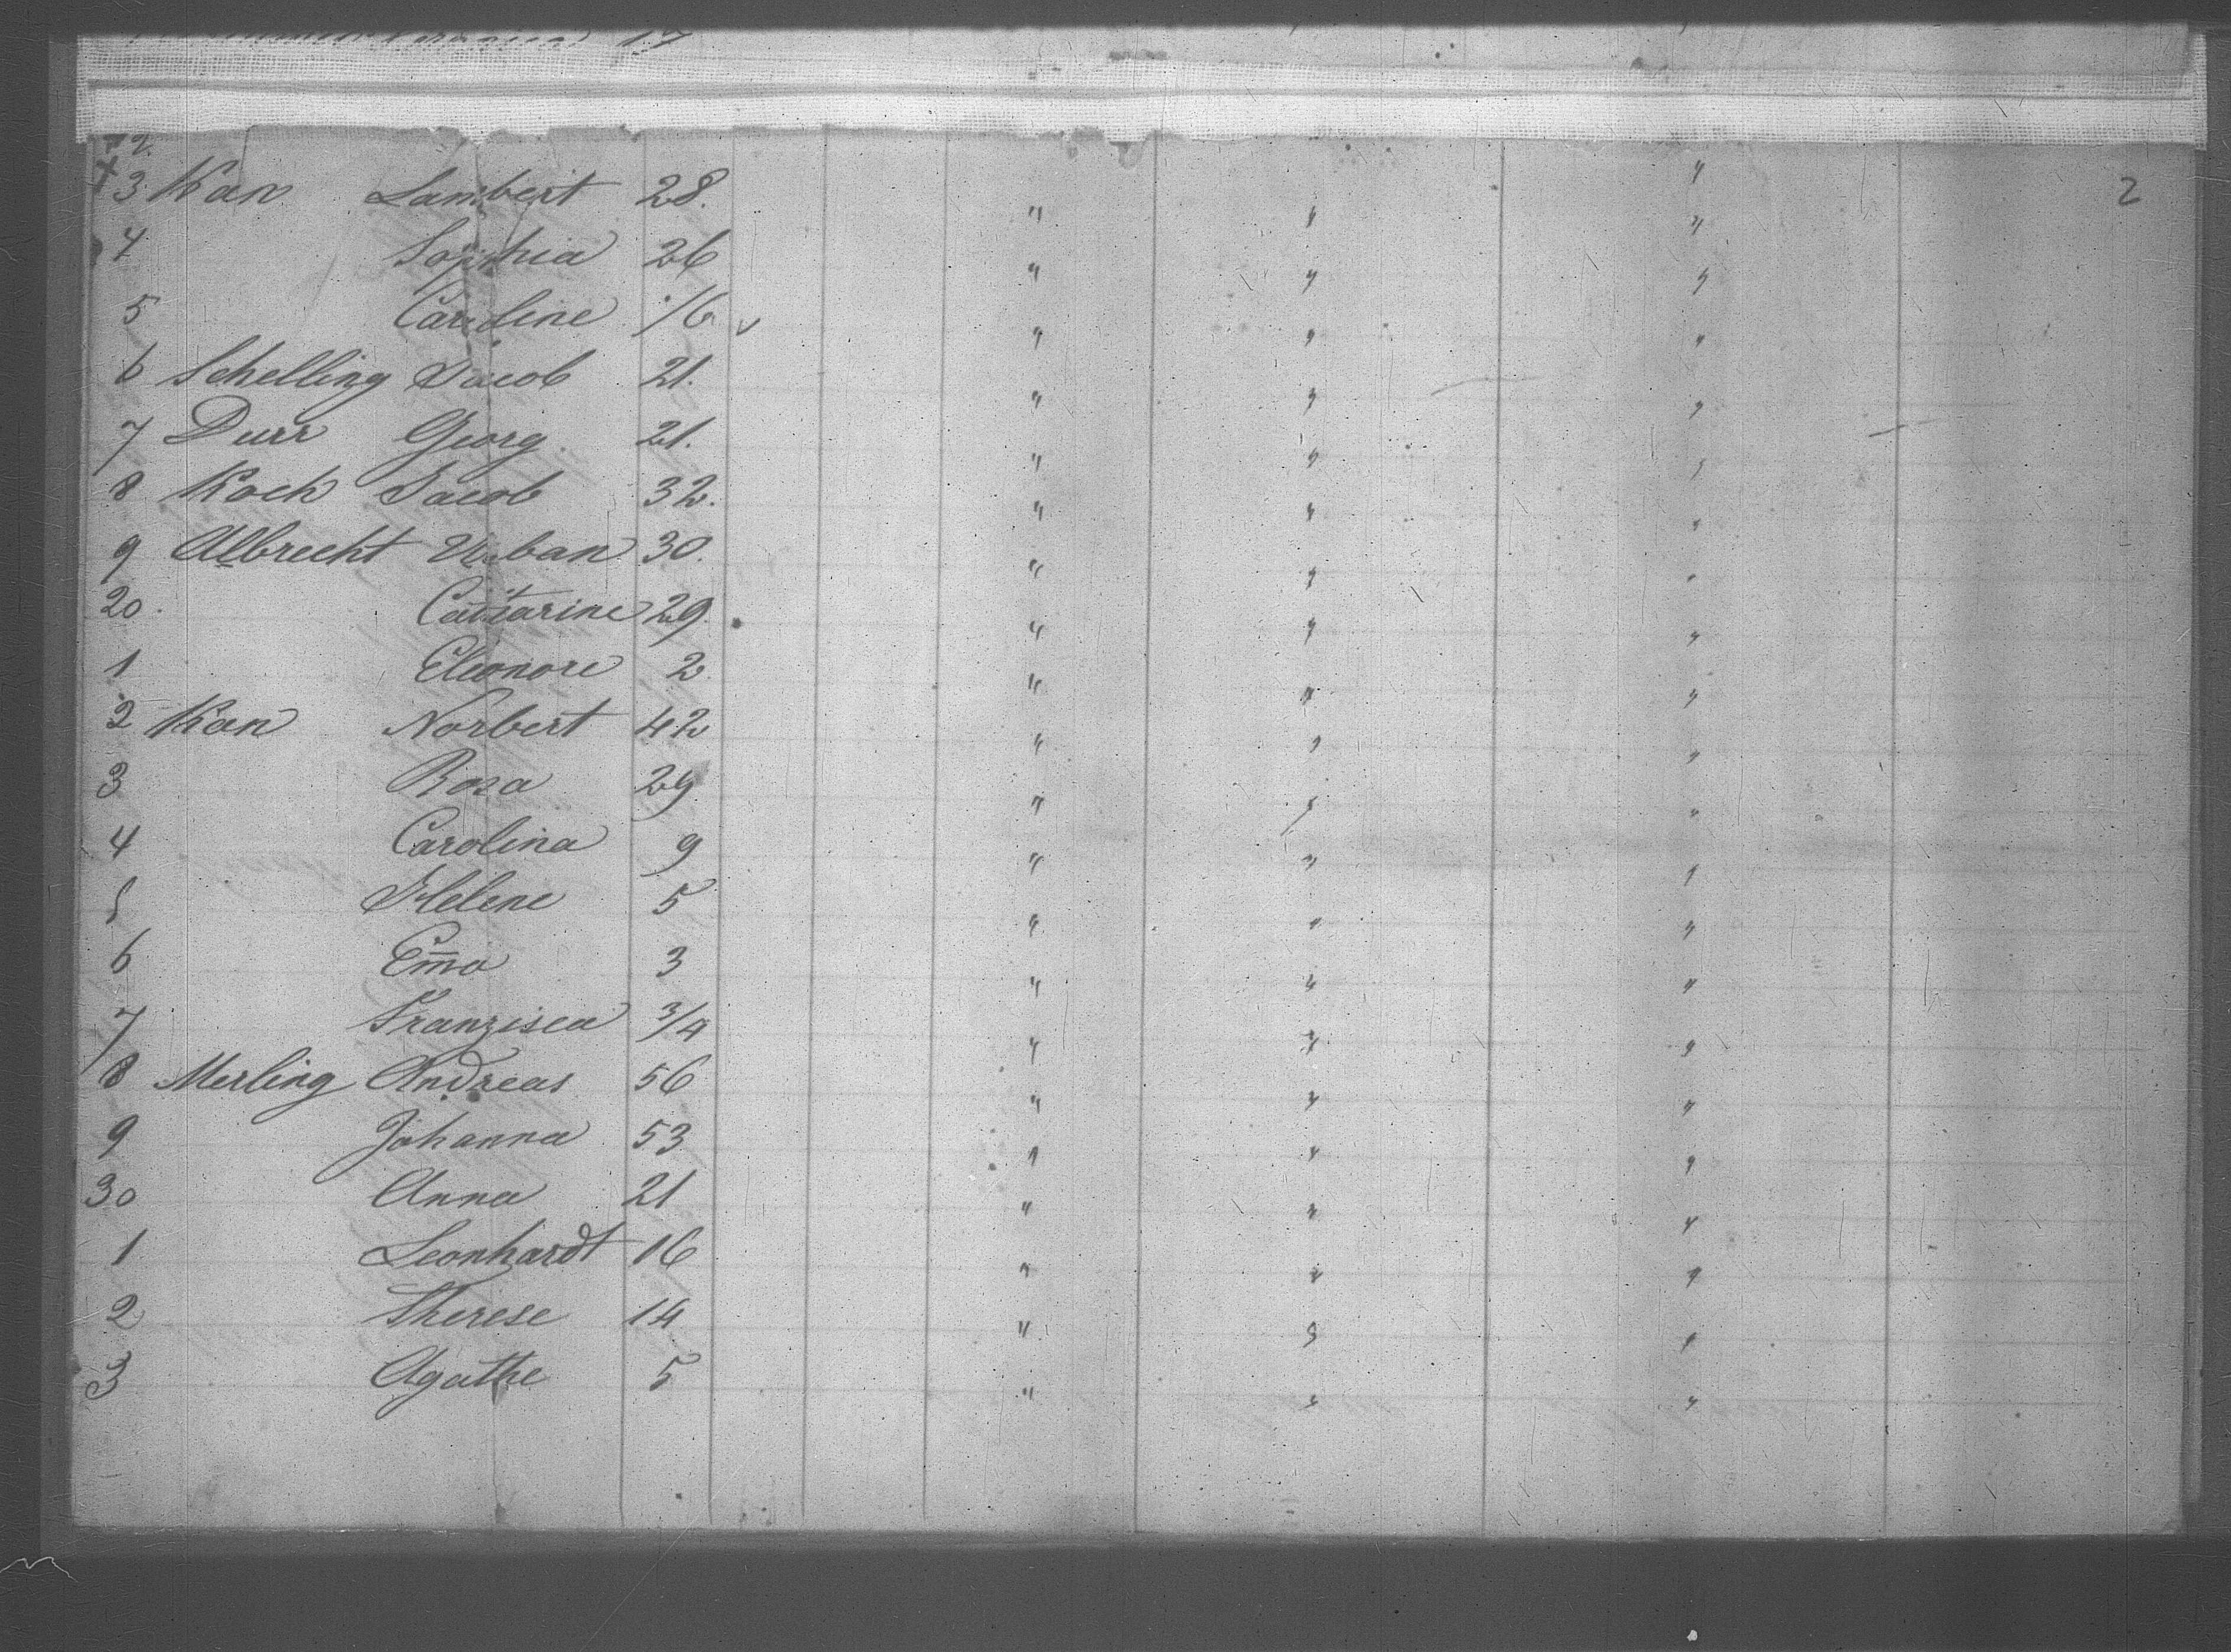 17
12.
3. Kan Lambert 28. " " " 2
4 Sophia 26 " " "
5 Caroline 1/6 " " "
6 Schelling Jacob 21. " " "
7 Durr Georg 21. " " "
8 Koch Jacob 32. " " "
9 Albrecht Urban 30. " " "
20. Catharine 29. " " "
1 Eleonore 2 " " "
2 Kan Norbert 42 " " "
3 Rosa 29 " " "
4 Carolina 9 " " "
5 Helene 5 " " "
6 Em̄a 3 " " "
7 Franzisca 3/4 " " "
8 Merling Andreas 56 " " "
9 Johanna 53 " " "
30 Anna 21 " " "
1 Leonhardt 16 " " "
2 Therese 14 " " "
3 Agathe 5 " " "